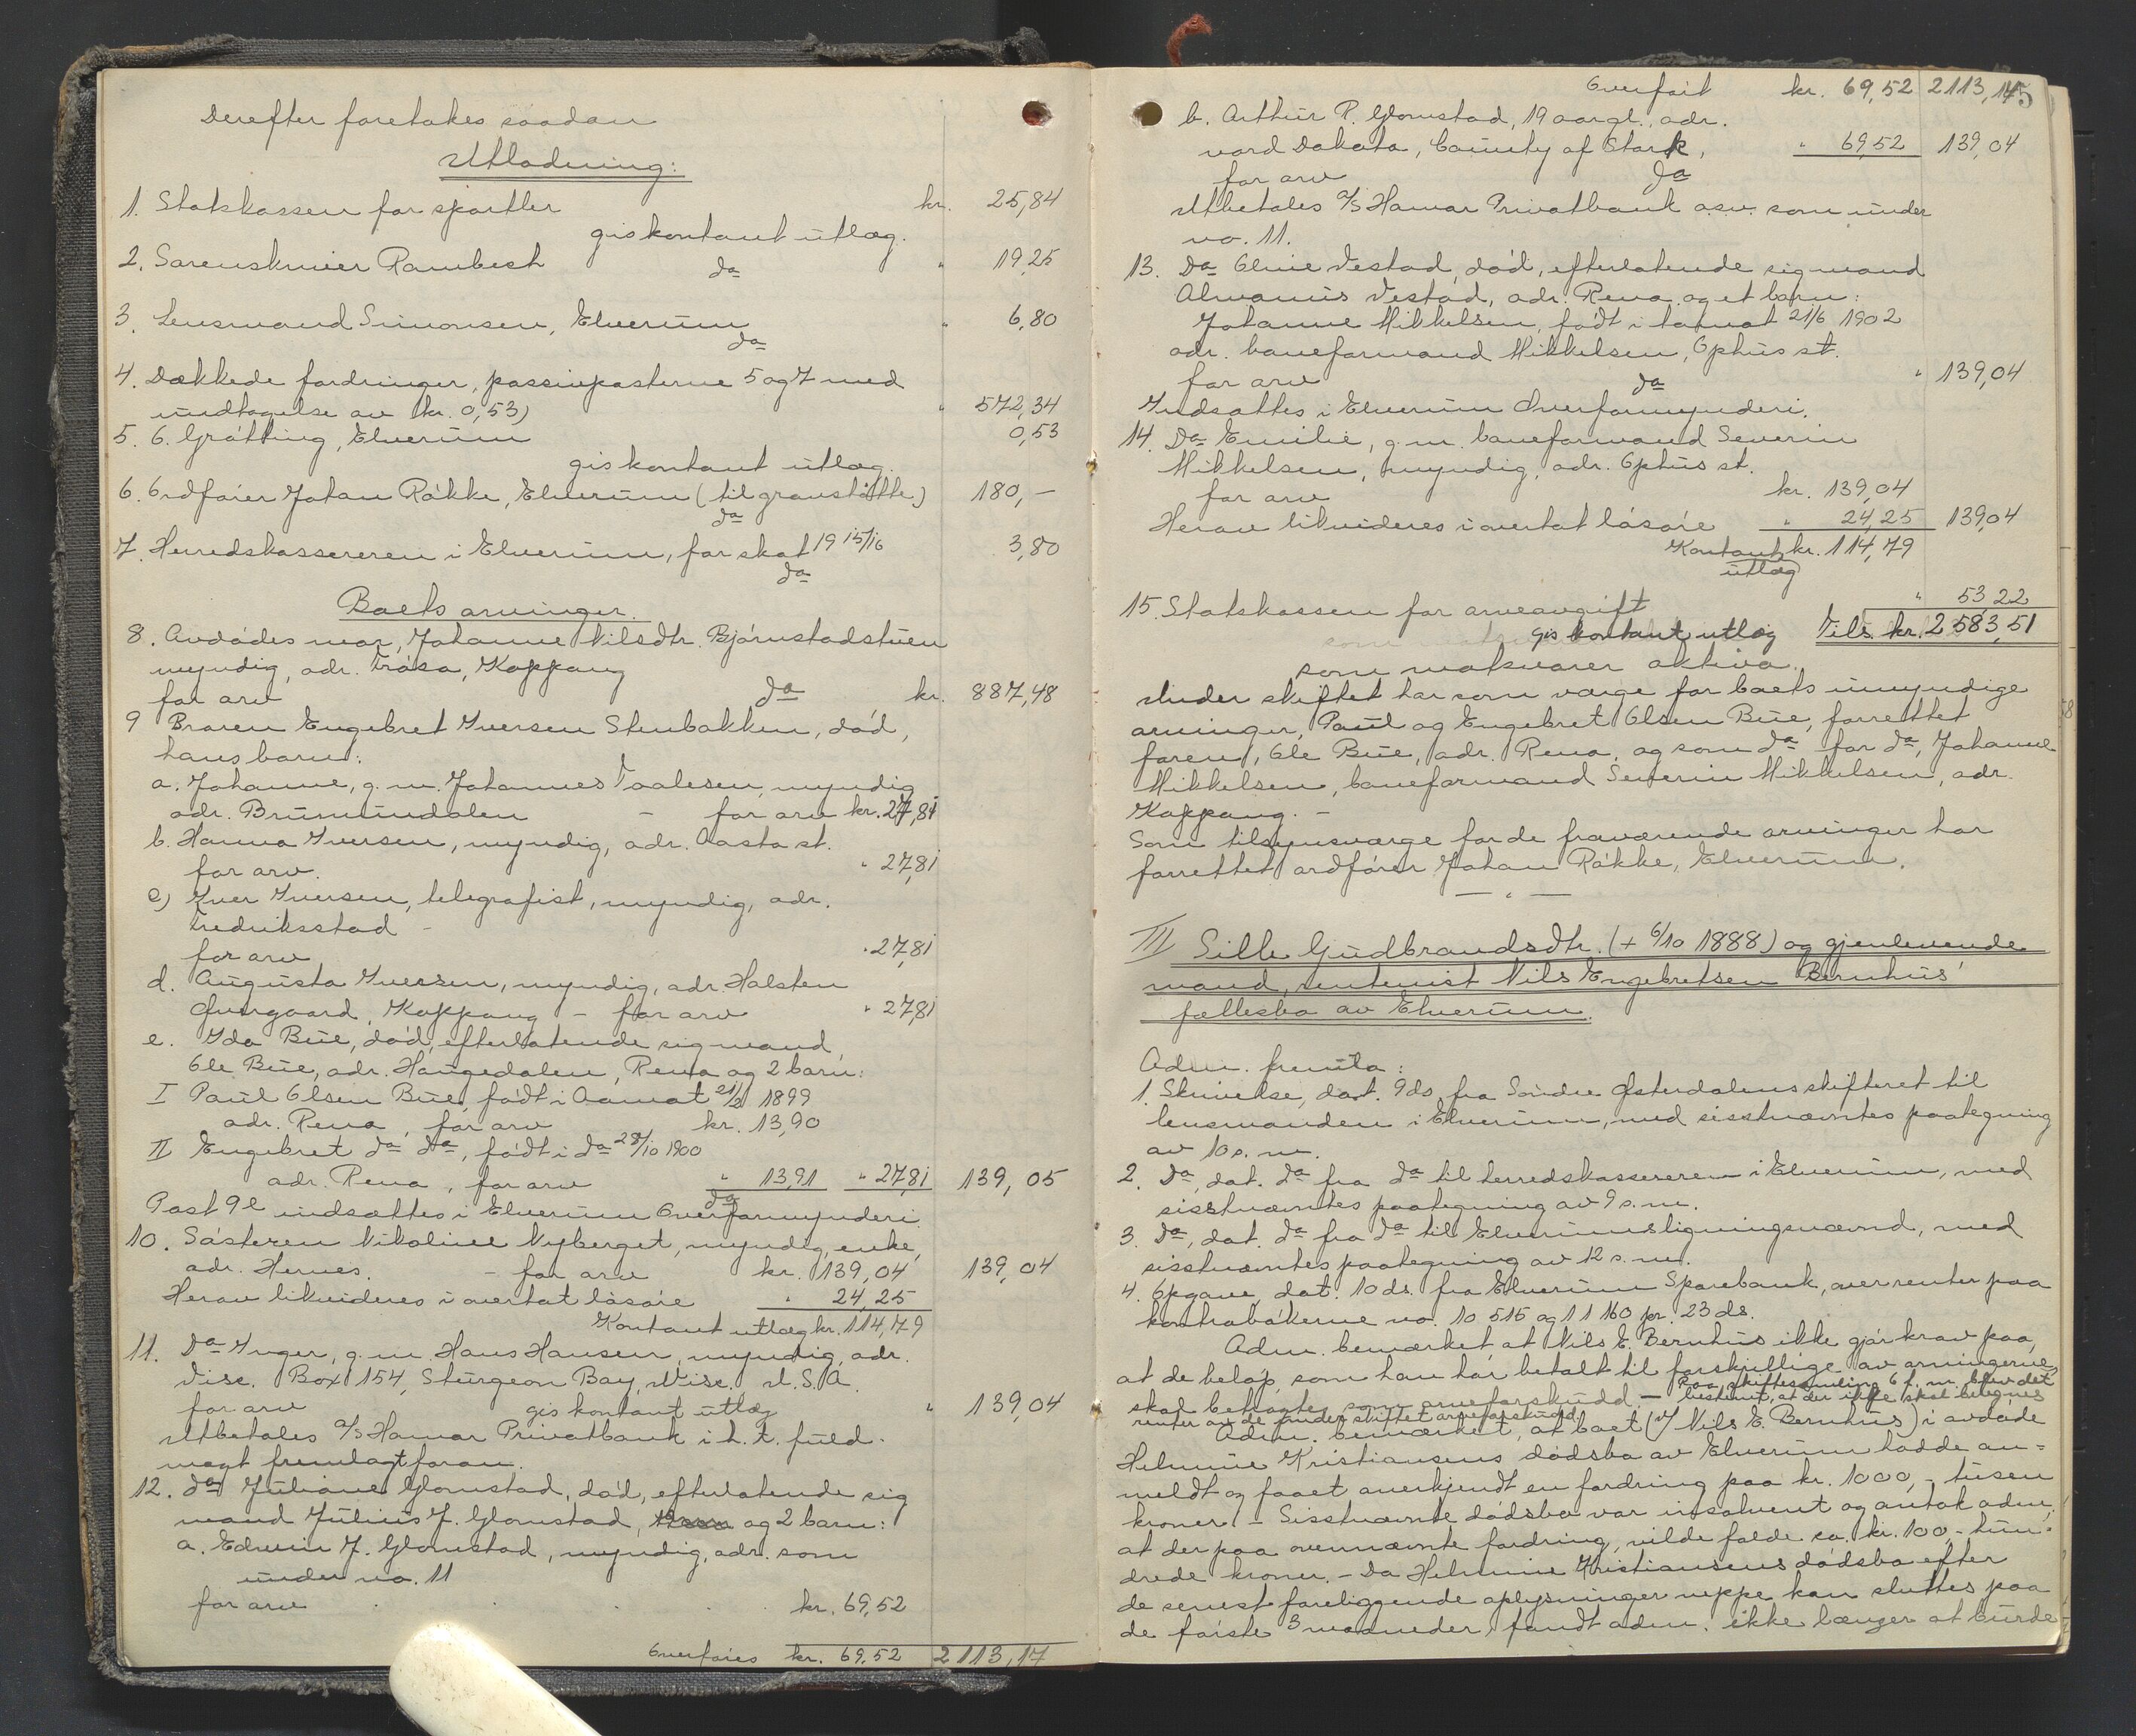 Derefter foretakes saadan
Utlodning:
1. Statskassen for sportler kr. 25,84
gis kontant utlæg.
2. Sorenskriver Rambech " 19,25
do
3. Lensmand Simonsen, Elverum " 6,80
do
4. Dækkede fordringer, passivposterne 5 og 7 med
undtagelse av kr. 0,53) " 572,34
5. O. Grøtting, Elverum 0,53
gis kontant utlæg.
6. Ordfører Johan Røkke, Elverum (til gravstøtte) 180,-
do
7. Herredskassereren i Elverum, for skat 1915/16 3,80
do
Boets arvinger.
8. Avdødes mor, Johanne Nilsdtr. Bjørnstadstuen
myndig, adr. Træsa, Koppang
for arv do kr. 887,48
9 Broren Engebret Iversen Stenbakken, død,
hans barn:
a. Johanne, g. m. Johannes Taalesen, myndig
adr. Brumunddalen - for arv kr. 27,81
b. Hanna Iversen, myndig, adr. Aasta st.
for arv. " 27,81
c) Iver Iversen, telegrafist, myndig, adr.
Fredriksstad -
for arv " 27,81
d. Augusta Iversen, myndig, adr. Halsten
Øvergaard, Koppang - for arv " 27,81
e. Ida Bue, død, efterlatende sig mand,
Ole Bue, adr. Haugedalen, Rena og 2 barn:
I Paul Olsen Bue, født i Aamot 21/2 1899
adr. Rena, for arv kr. 13,90
II Engebret do do, født i do 28/10 1900
adr. Rena, for arv " 13,91 " 27,81 139,05
do
Post 9e indsættes i Elverum Overformynderi.
10. Søsteren Nikoline Nyberget, myndig, enke,
adr. Hernes. - for arv kr. 139,04 139,04
Herav likvideres i overtat løsøre " 24,25
Kontant utlæg kr. 114,79
11. Do Inger, g. m. Hans Hansen, myndig, adr.
Visc. Box 154, Sturgeon Bay, Wisc. U. S. A.
for arv gis kontant utlæg " 139,04
Utbetales A/S Hamar Privatbank i h. t. fuld-
magt fremlagt foran.
12. do Juliane Glomstad, død, efterlatende sig
mand Julius J. Glomstad, og 2 barn:
a. Edwin J. Glomstad, myndig, adr. som
under no. 11
for arv . . . . kr. 69,52
Overføres kr. 69,52 2113,17
Overført kr. 69,52 2113,17
b. Arthur R. Glomstad, 19 aar gl., adr.
nord Dakota, County of Stark, " 69,52 139,04
for arv do
Utbetales A/S Hamar Privatbank osv. som under
no. 11.
13. Do Oline Vestad, død, efterlatende sig mand
Alvanus Vestad, adr. Rena og et barn:
Johanne Mikkelsen, født i Aamot 21/6 1902
adr. baneformand Mikkelsen, Ophus st.
for arv do " 139,04
Indsættes i Elverum Overformynderi.
14. Do Emilie, g. m. baneformand Severin
Mikkelsen, myndig, adr. Ophus st.
for arv kr. 139,04
Herav likvideres i overtat løsøre " 24,25 139,04
Kontant kr. 114,79
utlæg
15. Statskassen for arveavgift " 53 22
gis kontant utlæg Tils. kr. 2 583,51
som motsvarer aktiva.
Under skiftet har som værge for boets umyndige
arvinger, Paul og Engebret Olsen Bue, forrettet
faren, Ole Bue, adr. Rena, og som do for do, Johanne
Mikkelsen, baneformand Severin Mikkelsen, adr.
Koppang. -
Som tilsynsværge for de fraværende arvinger har
forrettet ordfører Johan Røkke, Elverum.
— " —
III Sille Gudbrandsdtr. (+ 6/10 1888) og gjenlevende
mand, rentenist Nils Engebretsen Bernhus'
fællesbo av Elverum.
Adm. fremla:
1. Skrivelse, dat. 9 ds. fra Søndre Østerdalens skifteret til
lensmanden i Elverum, med sisstnævntes paategning
av 10 s. m.
2. Do, dat. do fra do til herredskassereren i Elverum, med
sisstnævntes paategning av 9 s. m.
3. Do, dat. do fra do til Elverums ligningsnævnd, med
sisstnævntes paategning av 12 s. m.
4. Opgave, dat. 10 ds. fra Elverum Sparebank, over renter paa
kontrabøkerne no. 10 515 og 11 160 pr. 23 ds.
Adm. bemærket, at Nils E. Bernhus ikke gjør krav paa,
at de beløp, som han har betalt til forskjellige av arvingerne,
skal betragtes som arveforskudd. — Paa skiftesamling 6 f. m. blev det
bestemt, at der ikke skal beregnes
renter av de under skiftet arveforskudd.
Adm. bemærket, at boet (v/ Nils E. Bernhus) i avdøde
Helmine Kristiansens dødsbo av Elverum hadde an=
meldt og faaet anerkjendt en fordring paa kr. 1000,- tusen
kroner. - Sisstnævnte dødsbo var insolvent og antok adm.
at der paa ovennævnte fordring, vilde falde ca. kr. 100,- hun=
drede kroner. - Da Helmine Kristiansens dødsbo efter
de senest foreliggende oplysninger neppe kan sluttes paa
de første 3 maaneder, fandt adm. ikke længer at burde